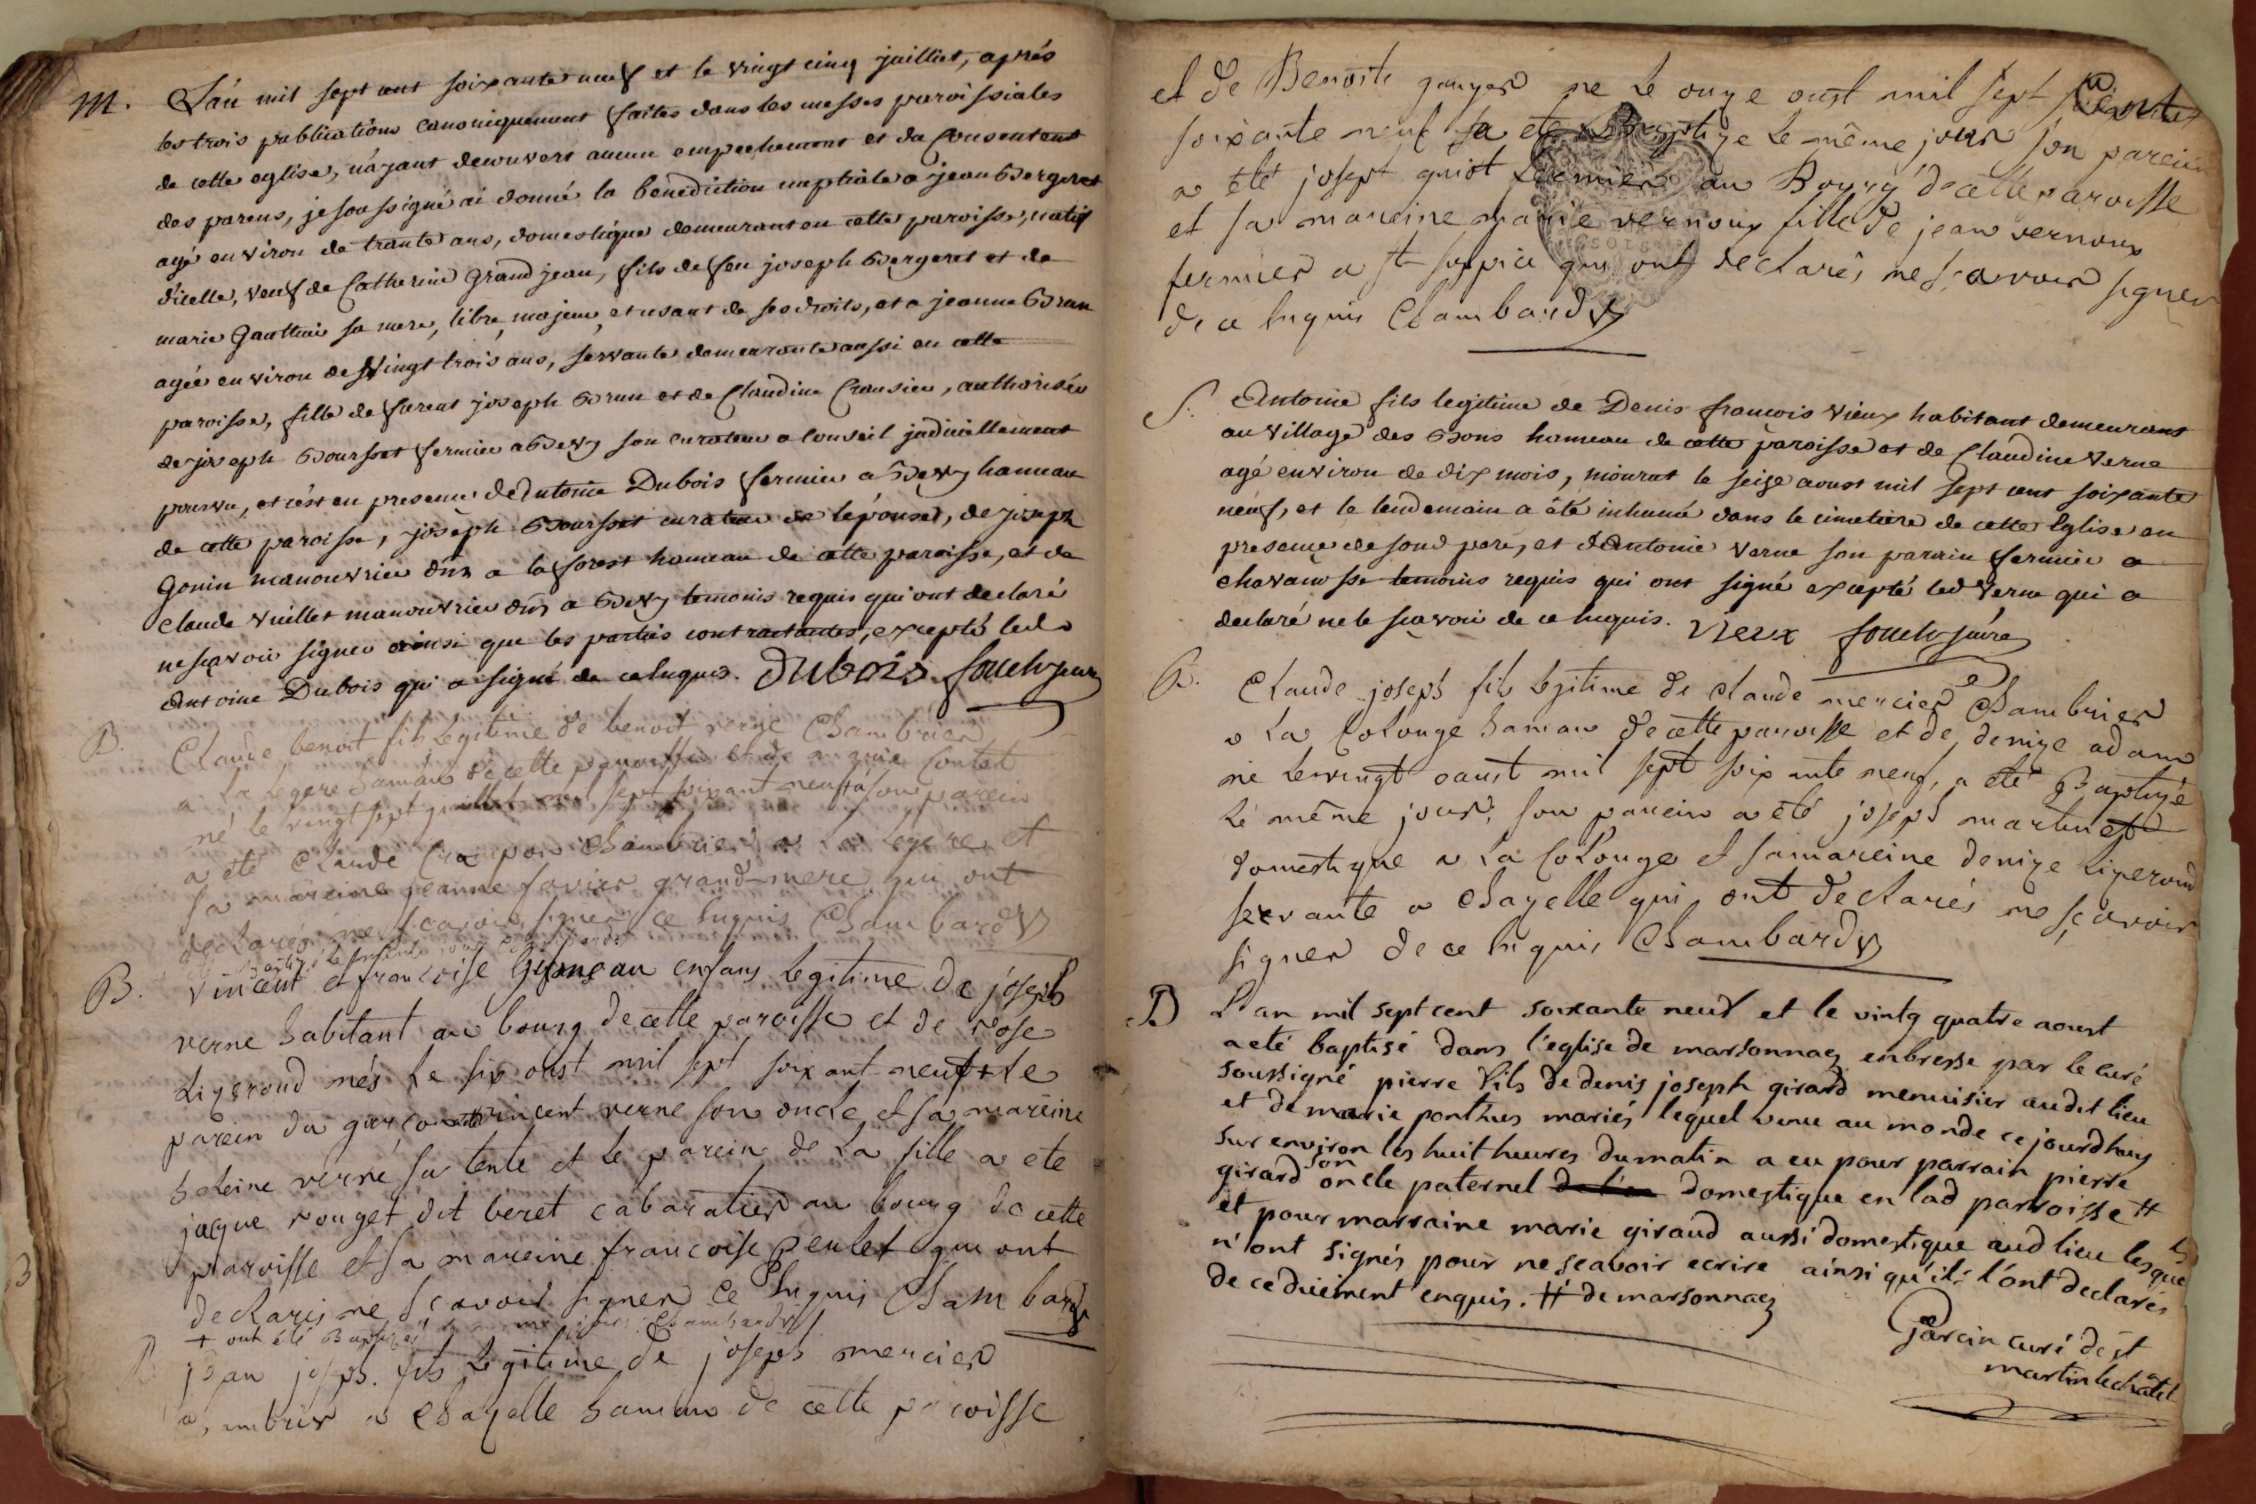 M. L'an mil sept cent soixante neuf et le vingt cinq juilliet, aprés
les trois publications canoniquement faites dans les messes paroissiales
de cette eglise, n'ayant decouvert aucun empechement et du Consentement
des parens, je soussigné ai donné la benediction nuptiale a jean Bergeret
agé environ de trante ans, domestique demeurant en cette paroisse, natif
d'icelle, veuf de Catherine Grandjean, fils de feu joseph Bergeret et de
marie Gauthier sa mere, libre, majeur, et usant de ses droits, et a jeanne Brun
agée environ de vingt trois ans, servante demeurante aussi en cette
paroisse, fille de furent joseph Brun et de Claudine , authorisée
de joseph Boursset fermier a son curateur a conseil judiciellement
pourvu, et c'est en presence d'Antoine Dubois fermier a hameau
de cette paroisse, joseph Boursset curateur de l'épouse, de joseph
Gonin manouvrier dmt a la forest hameau de cette paroisse, et de
claude vuillet manouvrier dmt a temoins requis qui ont declaré
ne sçavoir signer ainsi que les parties contractantes, excepté led
Antoine Dubois qui a signé de ce enquis. Dubois
B. Claude benoit fils legitime de benoit verne Chambrier
a la legere hamau de cette paroisse et de
né le vingt sept juillet mil sept soixant neuf a son parein
a été claude chambrier a la legere et
sa mareine jeanne favier grand-mere qui ont
declarés ne scavoir signer ce enquis Chambard
B. vincent et francoise enfans legitime de joseph
verne habitant au bourg de cette paroisse et de rose
Ligeroud nés le six oust mil sept soixant neuf + le
parein du garcon vincent verne son oncle et sa mareine
verne sa tente et le parein de la fille a été
jacque rouget dit beret cabaratier au bourg de cette
paroisse et sa mareine francoise qui ont
declarés ne scavoir signer ce enquis Chambard
+ ont été Baptisés le meme jour Chambard
B jean joseph fils legitime de joseph mercier
a chayelle hamau de cette paroisse
et de Benoite ne le onze oust mil sept cent
soixante neuf a été baptize le même jour son parein
a été josept guiot fermier au Bourg de cette paroisse
et sa mareine marie vernoux fille de jean vernoux
fermier a st supice qui ont declarés ne scavoir signer
de ce enquis Chambard
S. Antoine fils legitime de Denis francois vieux habitant demeurant
au village des Bons hameau de cette paroisse et de Claudine Verne
agé environ de dix mois, mourut le seize aoust mil sept cent soixante
neuf, et le lendemain a été inhumé dans le cimetiere de cette Eglise en
presence de sond pere, et d'Antoine Verne son parrain fermier a
temoins requis qui ont signé excepté led Verne qui a
declaré ne le sçavoir de ce enquis. vieux
B. Claude joseph fils legitime de claude mercier Chambrier
a La Colonge hamau de cette paroisse et de denize adam
né le vingt oaust mil sept soixante neuf, a été Baptizé
le même jour, son parein a été joseph martinet
domestique a La Colonge et sa mareine denize Ligeroud
servante a chayelle qui ont declarés ne sçavoir
signer de ce enquis Chambard
B L'an mil sept cent soixante neuf et le vintg quatre aoust
a eté baptisé dans l'eglise de marsonnaz en bresse par le curé
soussigné pierre fils de denis joseph girard menuisier audit lieu
et de marie ponthus mariés lequel venu au monde ce jourdhuy
sur environ les huit heures du matin a eu pour parrain pierre
girard son oncle paternel domestique en lad parroisse #
et pour marraine marie giraud aussi domestique aud lieu lesquels
n'ont signés pour ne scavoir ecrire ainsi qu'ils l'ont declarés
de ce duëment enquis. # de marsonnaz
Parcin curé de st
martin le châtel